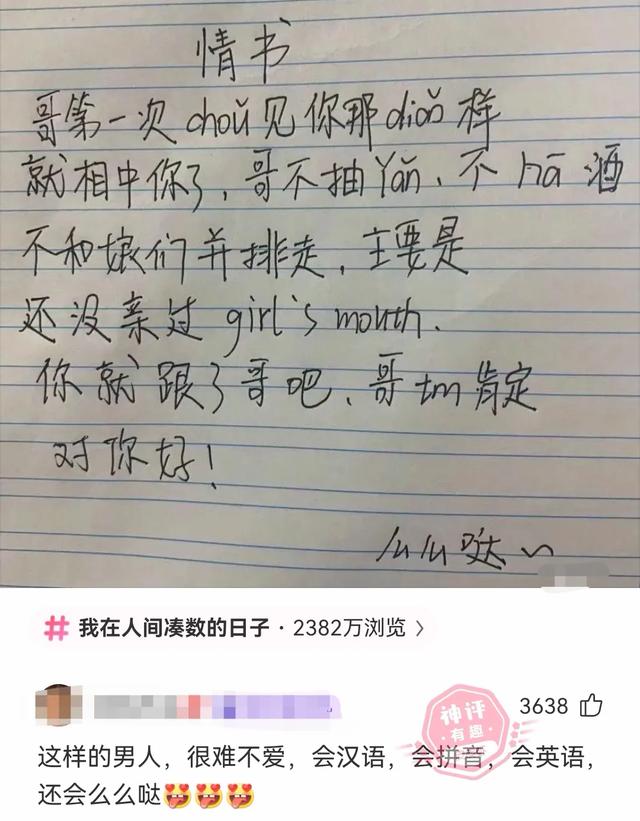 情书
哥第一次chǒu见你那diǒn样
就相中你了，哥不抽Yān、不hā酒
不和娘们并排走，主要是
还没亲过girl's mouth.
你就跟了哥吧、哥tm肯定
对你好！
么么哒~
#我在人间凑数的日子·2382万浏览>
神评
有趣
3638
这样的男人，很难不爱，会汉语，会拼音，会英语，
还会么么哒😍😍😍